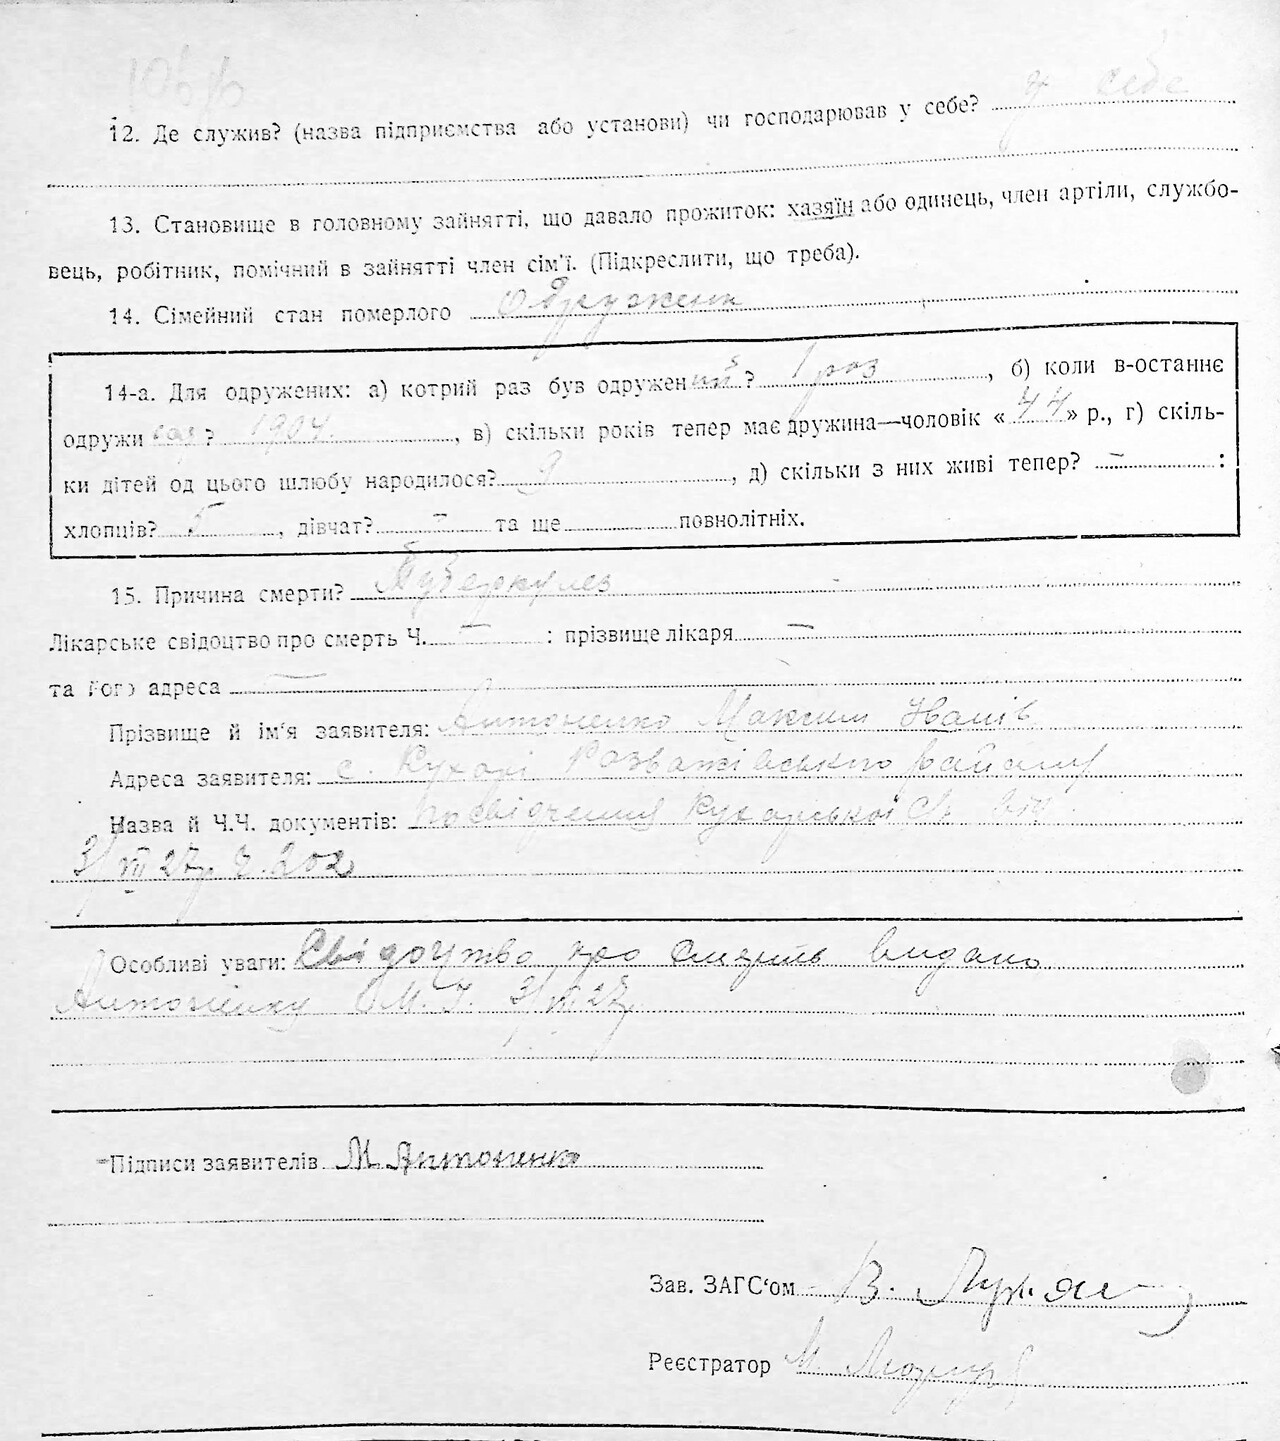 12. Де служив? (назва підприємства або установи) чи господарював у себе? у себе
13. Становище в головному зайнятті, що давало прожиток: хазяїн або одинець, член артіли, службо-
вець, робітник, помічний в зайнятті член сім'ї. (Підкреслити, що треба).
14. Сімейний стан померлого одружений
14-а. Для одружених: а) котрий раз був одружений? 1 раз, б) коли в-останнє
одруживсь? 1904, в) скільки років тепер має дружина—чоловік «44» р., г) скіль-
ки дітей од цього шлюбу народилося? 9, д) скільки з них живі тепер? — :
хлопців? 5, дівчат? — та ще повнолітніх.
15. Причина смерти? Туберкульоз
Лікарське свідоцтво про смерть Ч. — : прізвище лікаря —
та його адреса —
Прізвище й ім'я заявителя: Антоненко Максим Іванів
Адреса заявителя: с. Кухарі Розважівського району
Назва й Ч.Ч. документів: посвідчення Кухарської с/р від
3/VIII 27р Ч. 202
Особливі уваги: Свідоцтво про смерть видано
Антоненку М. І. 3/VIII 27р
Підписи заявителів М Антоненко
Зав. ЗАГС'ом В.
Реєстратор М.